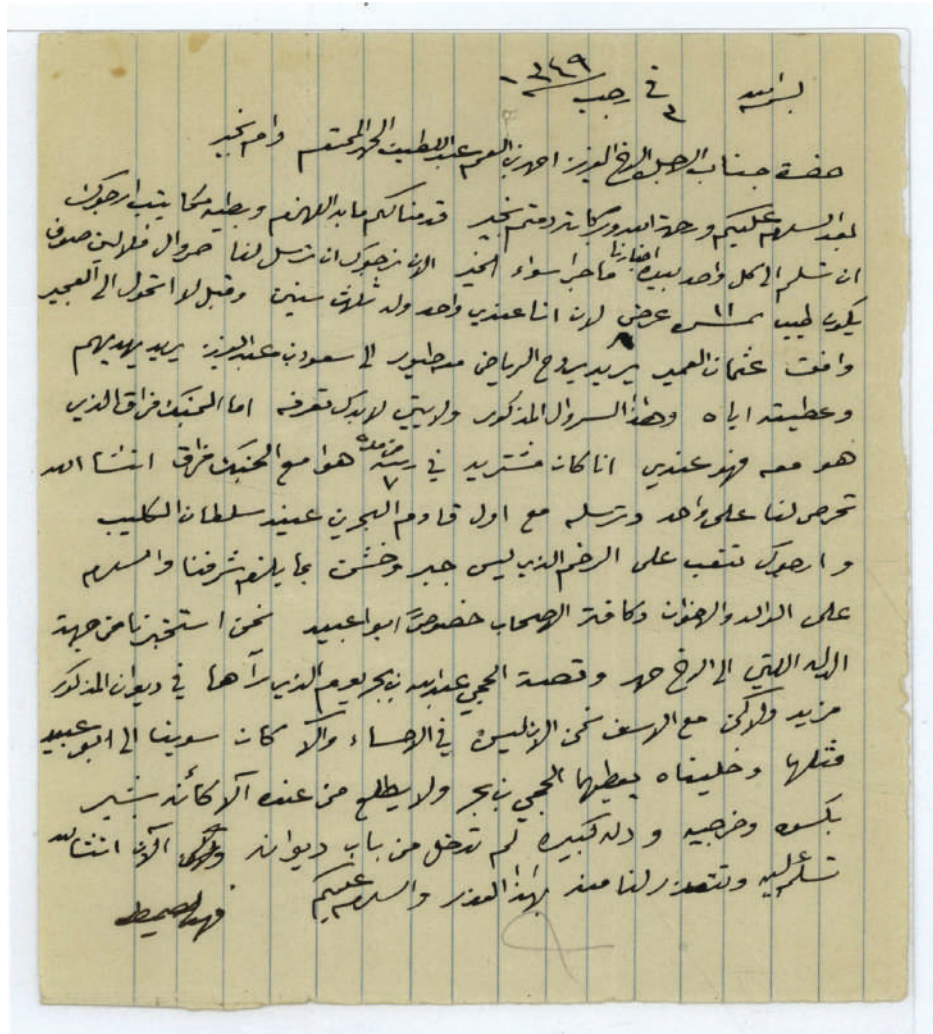 بسم الله في ٣ رجب ١٣٤٩
حضرة جناب الاجل الاخ العزيز احمد بن العم عبد اللطيف الحمد المحترم دام بخير
بعد السلام عليكم ورحمة الله وبركاته دمتم بخير قدمنا لكم ما به اللهزم وبطيه مكاتيب ارجوك
ان تسلم الى كل واحد بيده اخبارنا ما جرا سواء الخير الان نرجوك ان ترسل لنا صوف
يكون طيب عرض لان انا عندي واحد وله ثلاث سنين وقبل لا اتحول الى العجير
وافقت عثمان العمير يريد يروح الرياض معه طيور الى سعود بن عبد العزيز يريد يهديهم
وعطيته اياه وهذا السروال المذكور ولابيتي لابدك تعرفه اما فراق الذي
هو معه فهو عندي انا كان مشتريه في من مدة ٧ هوا مع فراق انشا الله
تحرص لنا على واحد وترسله مع اول قادم البحرين عند سلطان الكليب
وارجوك تتعب على الرخم الذي ليس جبر وخشن بما يلزم شرفنا والسلام
على الوالد والاخوان وكافة الاصحاب خصوصاً ابوا عبيد نحن استخبرنا من جهة
الدله اللتي الى الاخ حمد وقصة الحجي عبد الله بن بحر يوم الذي رآها في ديوان المذكور
مزيد ولاكن مع الاسف نحن الان ليس في الاحساء والا كان سوينا الى ابو عبيد
مثلها وخليناه يعطيها الحجي بن بحر ولا يطلع من عنده الا كأنه بشير
بكسوه وخرجيه ودله كبيره لم تدخل من باب ديوانه الان انشالله
تسلم عليه وتتعذر لنا منه بهذا العذر والسلام عليكم